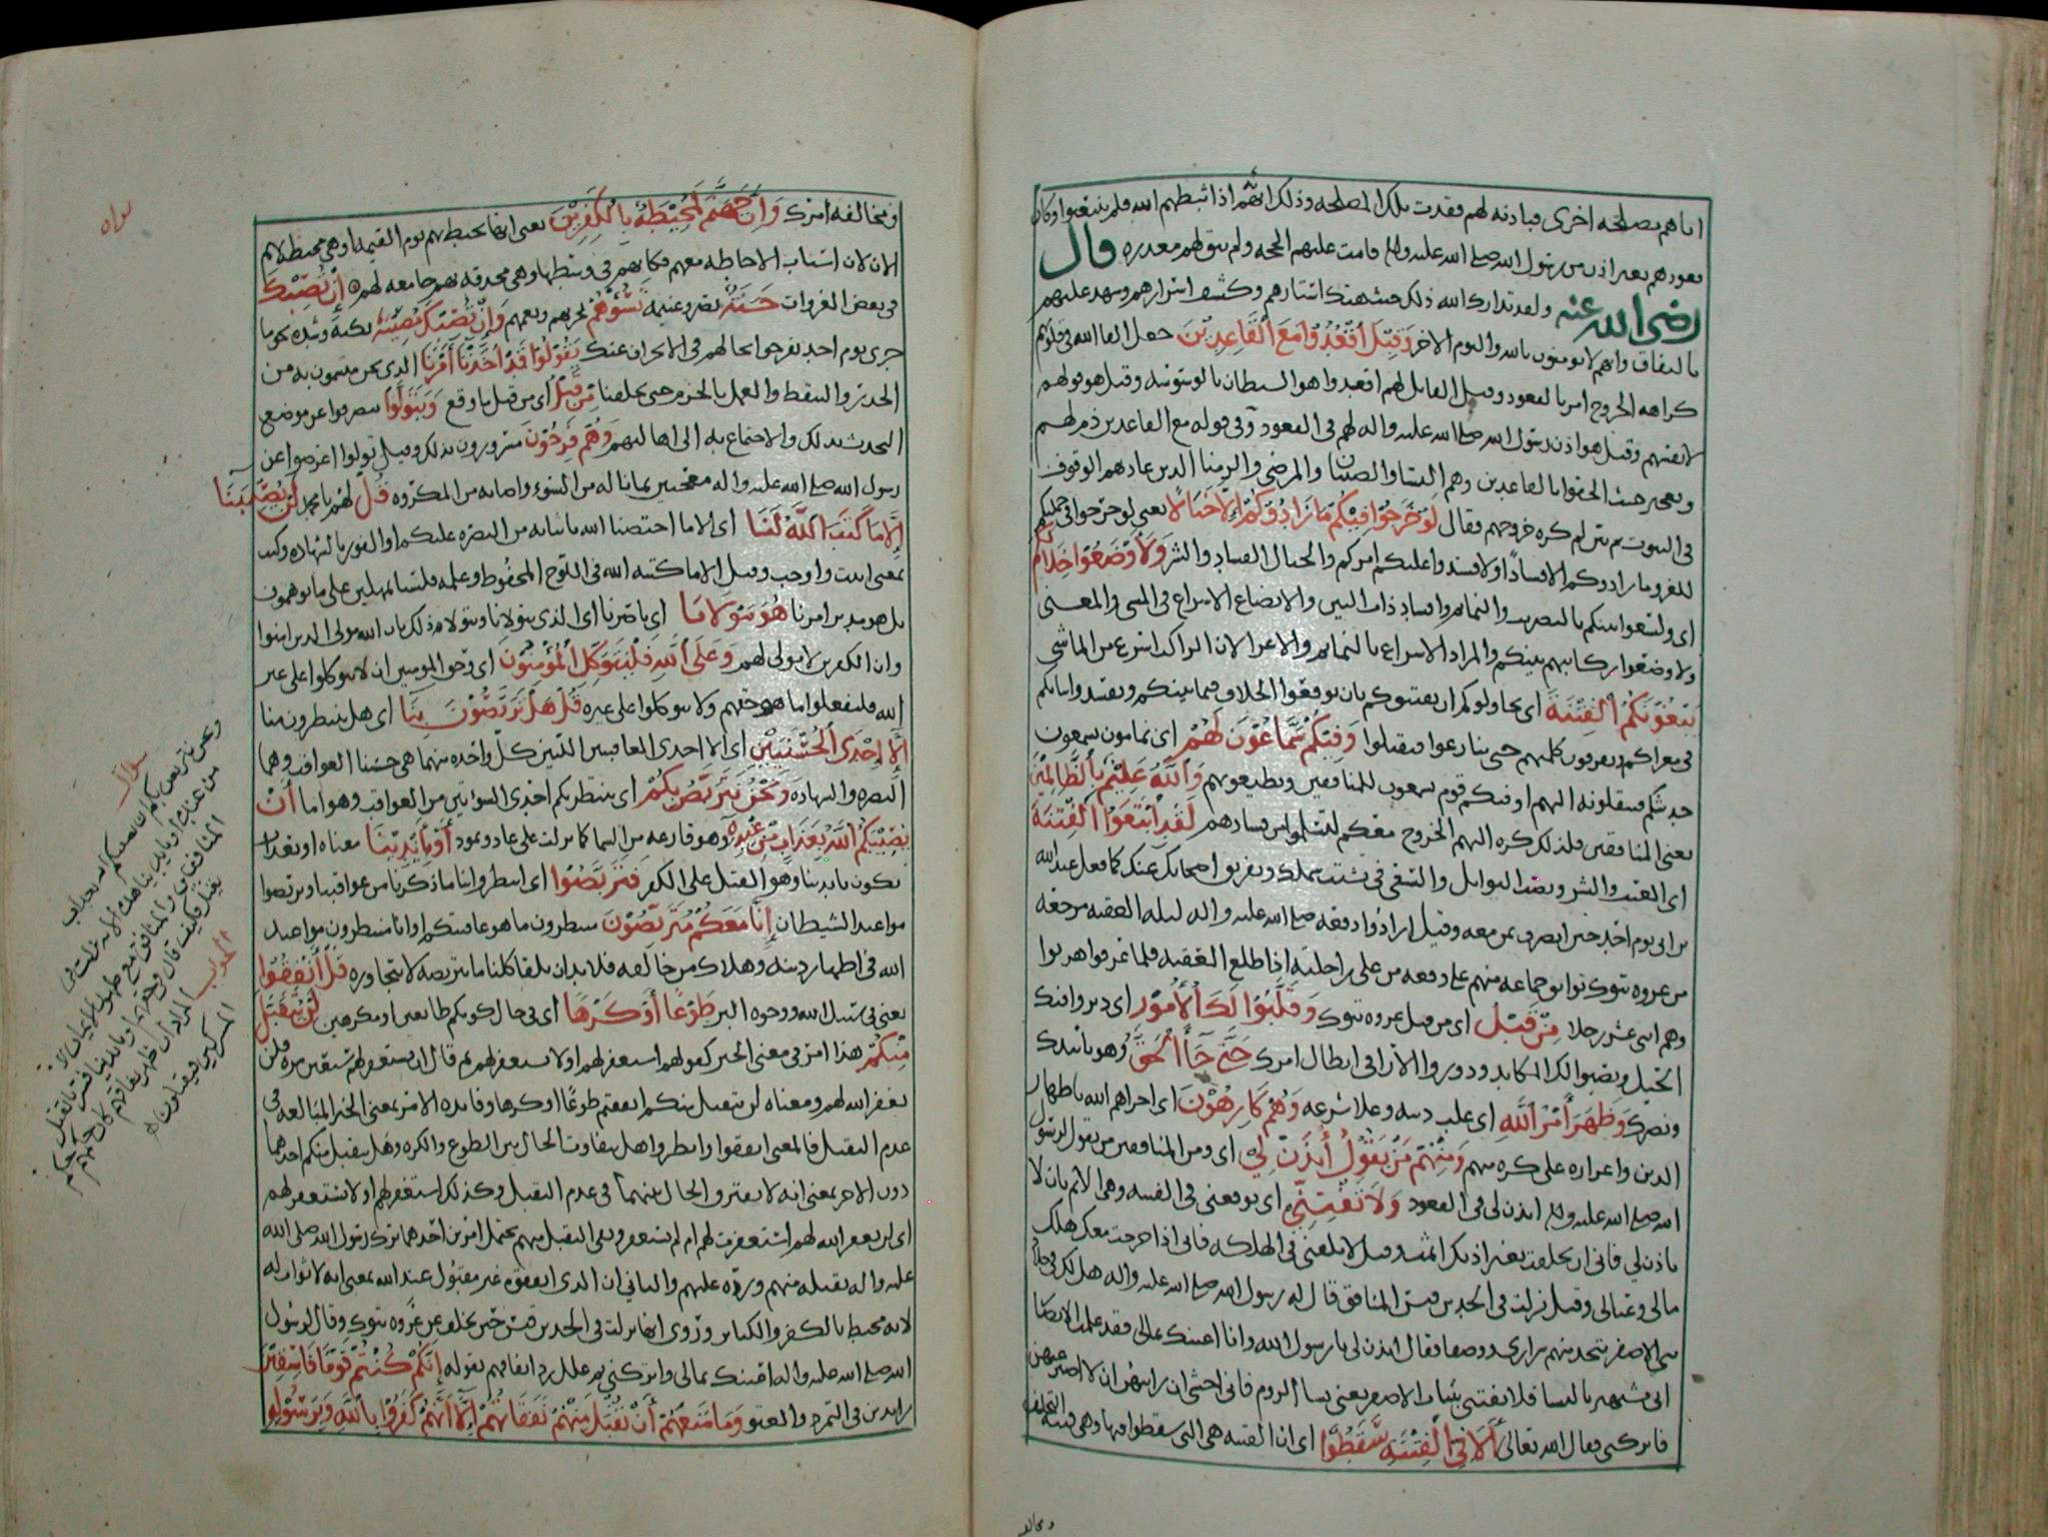 اياهم مصلحة اخرى فبادنه لهم فقدت تلك المصلحه وذلك انهم اذا ثبطهم الله فلم ينبعثوا وكان
قعودهم بغير اذن من رسول الله صلى الله عليه واله قامت عليهم الحجه ولم يبق لهم معذره قال
رضي الله عنه ولقد تدارك الله ذلك حيث هتك استارهم وكشف اسرارهم وشهد عليهم
بالنفاق وانهم لا يومنون بالله واليوم الاخر وَقِيْلَ اُقْعُدُوْا مَعَ اَلْقَاعِدِيْنَ جعل القا الله في قلوبهم
كراهة الخروج امرا بالقعود وقيل القايل لهم اقعدوا هو الشيطان بالوسوسه وقيل هو قولهم
لانفسهم وقيل هو اذن رسول الله صلى الله عليه واله لهم في القعود وفي قوله مع القاعدين ذم لهم
وتعجيز حيث الحقوا بالقاعدين وهم النسا والصبيان والمرضى والزمنا الذين عادهم الوقوف
في البيوت ثم بين لم كره خروجهم فقال لَوْ خَرَجُوْا فِيْكُمْ مَا زَادُوْكُمْ إِلَّا خَبَالًا يعني لو خرجوا في جملتكم
للغزو ما زادوكم الا فسادًا ولا فسدوا عليكم امركم والخبال الفساد والشر وَلَأَوْضَعُوْا خِلَالَكُمْ
اي ولسعوا بينكم بالتضريب والنمايم وافساد ذات البين والايضاع الاسراع في المشي والمعنى
ولاوضعوا ركايبهم بينكم والمراد الاسراع بالنمايم والاغرا لان الراكب اسرع من الماشي
يَبْغُوْنَكُمُ اَلْفِتْنَةَ اي يحاولوكم ان يفتنوكم بان يوقعوا الخلاف فيما بينكم ويفسدوا نياتكم
في مغزاكم ويفرقون كلمتهم حتى يتنازعوا فيقتلوا وَفِيْكُمْ سَمَّاعُوْنَ لَهُمْ اي نمامون يسمعون
حديثكم فينقلونه اليهم او فيكم قوم يسمعون للمنافقين ويطيعونهم وَاَللَّهُ عَلِيْمٌ بِالظَّالِمِيْنَ
يعني المنافقين فلذلك كره اليهم الخروج معكم لتسلموا من فسادهم لَقَدِ ابْتَغَوُا اَلْفِتْنَةَ
اي العنت والشر ونصب الغوايل والسعي في تشتيت شملك وتفريق اصحابك عنك كما فعل عبد الله
بن ابي يوم احد حين انصرف بمن معه وقيل ارادوا دفعه صلى الله عليه واله ليله العقبه مرجعه
من غزوة تبوك تواثق جماعه منهم على دفعه من على راحلته اذا طلع العقبه فلما عرفوا هربوا
وهم اثنى عشر رجلا مِنْ قَبْلُ اي من قبل غزوة تبوك وَقَلَّبُوْا لَكَ اَلْأُمُوْرَ اي دبروا فيك
الحيل ونصبوا لك المكايد ودوروا الآرا في ابطال امرك حَتَّى جَآءَ اَلْحَقُّ وهو تاييدك
ونصرك وَظَهَرَ أَمْرُ اَللَّهِ اي غلب دينه وعلا شرعه وَهُمْ كَارِهُوْنَ اي اخزاهم الله باظهار
الدين واعزازه على كره منهم وَمِنْهُمْ مَنْ يَقُوْلُ اُئْذَنْ لِيْ اي ومن المنافقين من يقول لرسول
الله صلى الله عليه واله ايذن لي في القعود وَلَا تَفْتِنِّيْ اي توقعني في الفتنه وهي الاثم بان لا
تاذن لي فاني ان تخلفت بغير اذنك اثمت وقيل لا تلقني في الهلكه فاني اذا خرجت معك هلك
مالي وعيالي وقيل نزلت في الجد بن قيس المنافق قال له رسول الله صلى الله عليه واله هل لك في جلاد
بني الاصفر نتخذ منهم سراري ووصفا فقال ايذن لي يا رسول الله وانا اعينك بمالي فقد علمت الانصار
اني مشتهر بالنسا فلا تفتني ببنات الاصفر يعني نسا الروم فاني اخشى ان رايتهن ان لا اصبر عنهن
فاتركني فقال الله تعالى أَلَا فِيْ اَلْفِتْنَةِ سَقَطُوْا اي ان الفتنه هي التي سقطوا فيها وهي فتنة التخلف
ومخالفه
ومخالفه امرك وَإِنَّ جَهَنَّمَ لَمُحِيْطَةٌ بِالْكَفِرِيْنَ يعني انها تحيط بهم يوم القيمه او هي محيطه بهم
الان لان اسباب الاحاطه معهم فكانهم في وسطها وهي محدقه بهم جامعه لهم إِنْ تُصِبْكَ
في بعض الغزوات حَسَنَةٌ نصر وغنيمه تَسُؤْهُمْ تحزنهم وتغمهم وَإِنْ تُصِبْكَ مُصِيْبَةٌ نكبه وشده نحو ما
جرى يوم احد يفرحوا بحالهم في الانحراف عنك يَقُوْلُوْا قَدْ أَخَذْنَا أَمْرَنَا الذي نحن متسمون به من
الحذر والتيقظ والعمل بالحزم حتى تخلفنا مِنْ قَبْلُ اي من قبل ما وقع وَيَتَوَلَّوْا ينصرفوا عن موضع
التحدث بذلك والاجتماع به الى اهاليهم وَهُمْ فَرِحُوْنَ مسرورون بذلك وقيل تولوا اعرضوا عن
رسول الله صلى الله عليه واله معجبين بما ناله من السوء واصابه من المكروه قُلْ لهم يا محمد لَنْ يُصِيْبَنَآ
إِلَّا مَا كَتَبَ اَللَّهُ لَنَا اي الا ما اختصنا الله باثباته من النصره عليكم او الفوز بالشهاده وكتب
بمعنى اثبت واوجب وقيل الا ما كتبه الله في اللوح المحفوظ وعلمه فلسنا بمهملين على ما توهمون
بل هو مدبر امرنا هُوَ مَوْلَانَا اي ناصرنا اي الذي يتولانا ونتولاه ذلك بان الله مولى الذين امنوا
وان الكفرين لا مولى لهم وَعَلَى اَللَّهِ فَلْيَتَوَكَّلِ اَلْمُؤْمِنُوْنَ اي وحق المومنين ان لا يتوكلوا على غير
الله فليفعلوا ما هو حقهم ولا يتوكلوا على غيره قُلْ هَلْ تَرَبَّصُوْنَ بِنَا اي هل ينتظرون منا
إِلَّا إِحْدَى اَلْحُسْنَيَيْنِ اي الا احدى العاقبتين اللتين كل واحده منهما هي حسنا العواقب وهما
النصره والشهاده وَنَحْنُ نَتَرَبَّصُ بِكُمْ اي ننتظر بكم احدى السوئتين من العواقب وهو اما أَنْ
يُصِيْبَكُمُ اَللَّهُ بِعَذَابٍ مِنْ عِنْدِهِ وهو قارعه من السما كما نزلت على عاد وثمود أَوْ بِأَيْدِيْنَا معناه او بعذاب
يكون بايدينا وهو القتل على الكفر فَتَرَبَّصُوْا اي انتظروا بنا ما ذكرنا من عواقبنا وتربصوا
مواعيد الشيطان إِنَّا مَعَكُمْ مُتَرَبِّصُوْنَ منتظرون ما هو عاقبتكم او انا منتظرون مواعيد
الله في اظهار دينه وهلاك من خالفه فلا بد ان يلقا كلنا ما يتربصه لا يتجاوزه قُلْ أَنْفِقُوْا
يعني في سبيل الله ووجوه البر طَوْعًا أَوْ كَرْهًا اي في حال كونكم طايعين او مكرهين لَنْ يُتَقَبَّلَ
مِنْكُمْ هذا امر في معنى الخبر كقولهم استغفر لهم او لا تستغفر لهم ثم قال ان تستغفر لهم سبعين مره فلن
يغفر الله لهم ومعناه لن يتقبل منكم انفقتم طوعًا او كرها وفايده الامر بمعنى الخبر المبالغه في
عدم التقبل فالمعنى انفقوا وانظروا هل يتفاوت الحال بين الطوع والكره وهل يتقبل منكم احدهما
دون الاخر بمعنى انه لا يفترق الحال بينهما في عدم التقبل وكذلك استغفر لهم او لا تستغفر لهم
اي لن يغفر الله لهم استغفرت لهم ام لم تستغفر ونفى التقبل منهم يحتمل امرين احدهما ترك رسول الله صلى الله
عليه واله تقبله منهم ورده عليهم والثاني ان الذي انفقوه غير مقبول عند الله بمعنى انه لا ثواب له
لانه محبط بالكفر والكباير وروي انها نزلت في الجد بن قيس حين تخلف عن غزوه تبوك وقال لرسول
الله صلى الله عليه واله اعينك بمالي واتركني ثم علل رد انفاقهم بقوله إِنَّكُمْ كُنْتُمْ قَوْمًا فَاسِقِيْنَ
زايدين في التمرد والعتو وَمَا مَنَعَهُمْ أَنْ تُقْبَلَ مِنْهُمْ نَفَقَاتُهُمْ إِلَّا أَنَّهُمْ كَفَرُوْا بِاَللَّهِ وَبِرَسُوْلِهِ
سوال
ونحن نتربص بكم ان يصيبكم الله بعذاب
من عنده او بايدينا هذه الايه نزلت في
المنافقين والمنافق مع ظهور الايمان لا
يقتل فكيف قال ونحن او بايدينا فسر بالقتل
الجواب المراد ان ظهر نفاقهم كان حكمهم حكم
المشركين فيقتلون